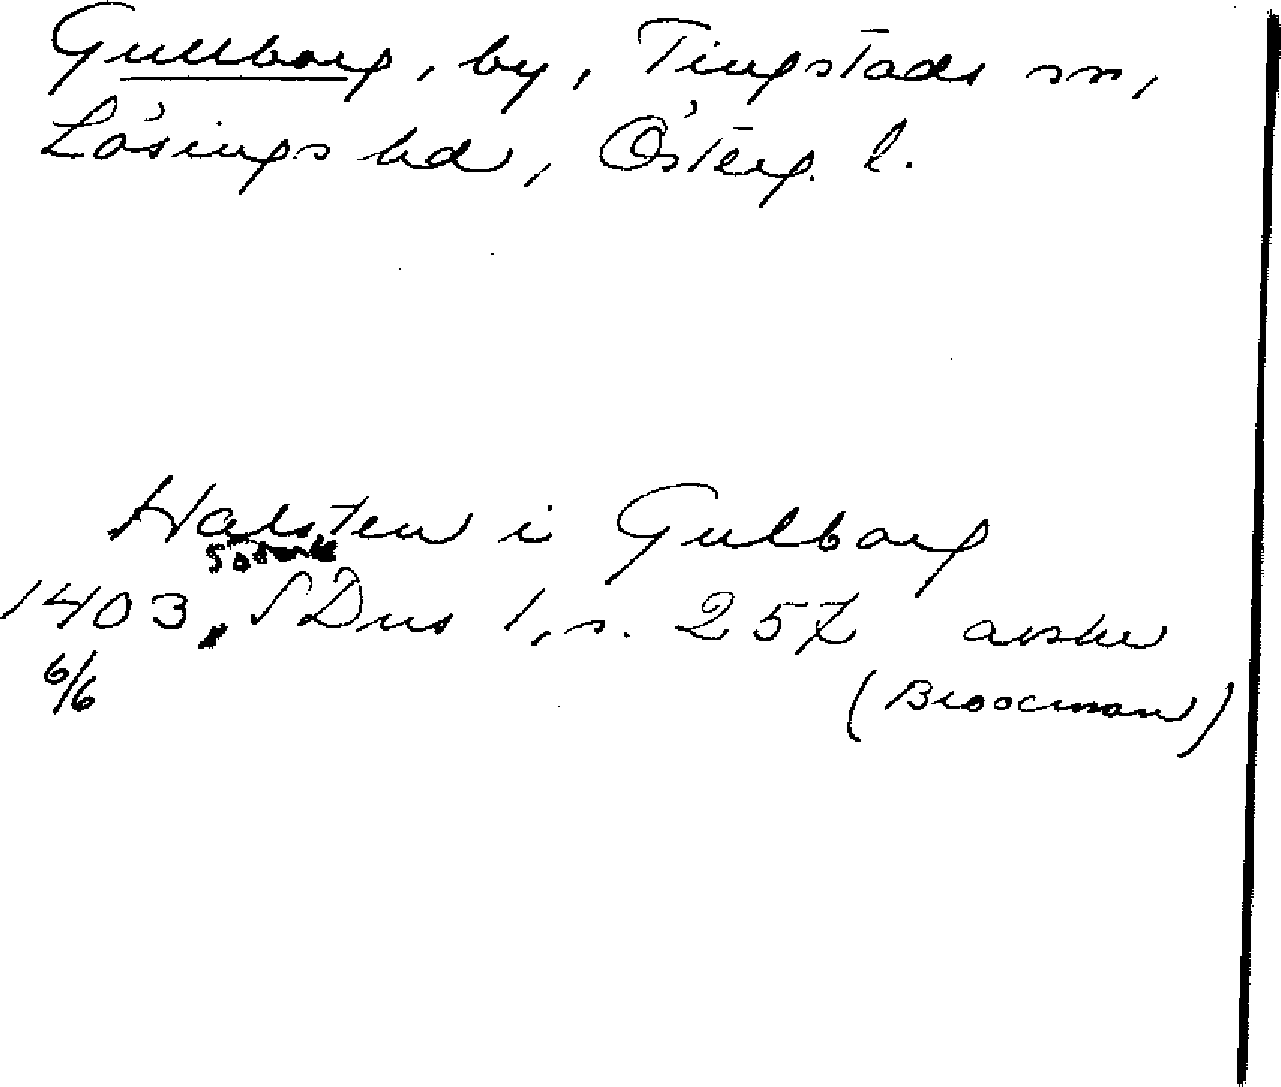 Gullborg, by, Tingstads sn,
Lösings hd, Österg. l.
Halsten i Gulborg
1403. SDns 1, s. 257 avskr
6/6 (Broocman)